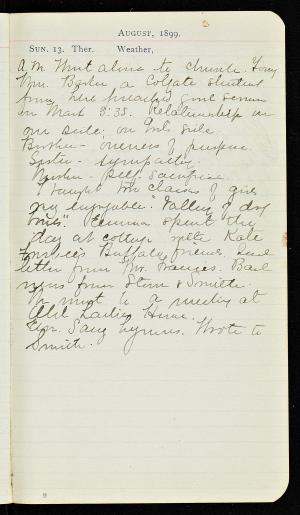 AUGUST, 1899.
SUN. 13. Ther. Weather,
A.M. Went alone to church. Young
Wm. a Colgate student
from here preached good sermon
on Mark 3:35. Relationship on
our side; on God's side.
Brother - oneness of purpose
Sister - sympathy.
Mother - Self Sacrifice.
I taught Mr class of girls
very enjoyable. "Valley of dry
bones". Emma spent the
day at cottage with Kate
Buffalo friends. Good
letter from Mr. Frances. Bad
news from &
We went to a meeting at
Old Ladies Home.
Eve. Sang hymns. Wrote to
Smith.